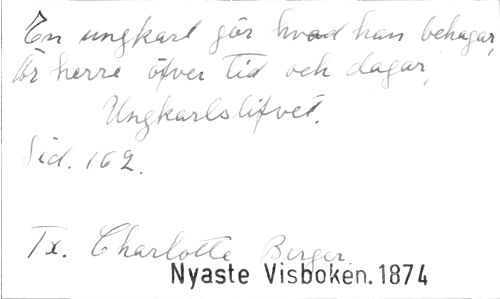 En ungkarl gör hvad han behagar,
är herre öfver tid och dagar,
Ungkarlslifvet.
Sid. 162.
Tx. Charlotte Berger.
Nyaste Visboken. 1874